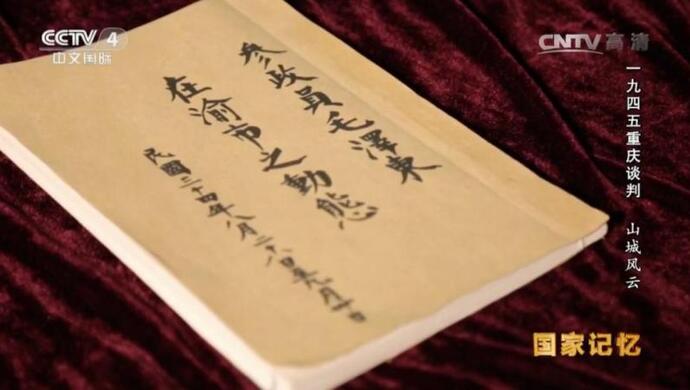 CCTV 4
中文国际
CNTV高清
参政員毛澤東
在渝市之動態
民國三十四年八月二十八日至九月
一九四五重庆谈判 山城风云
国家记忆